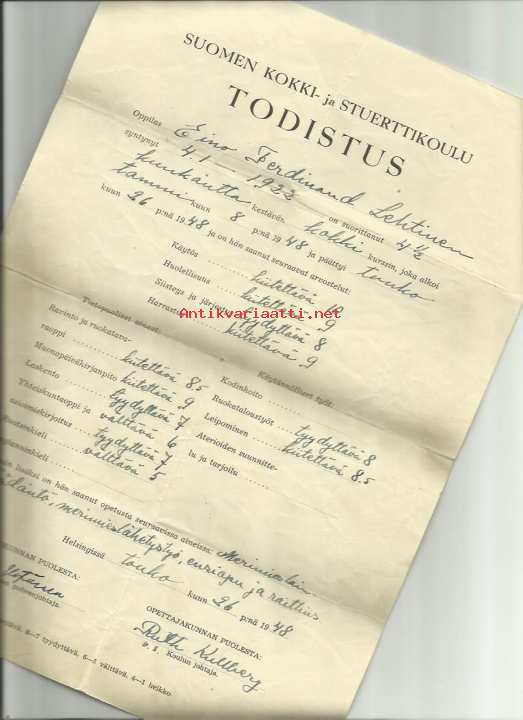 SUOMEN KOKKI- ja STUERTTIKOULU
TODISTUS
Oppilas Eino Ferdinand Lehtinen
syntynyt 4.1 - 1933 on suorittanut 4½
kuukautta kestävän kokki kurssin, joka alkoi
tammi kuun 8 p:nä 1948 ja päättyi touko
kuun 26 p:nä 1948 ja on hän saanut seuraavat arvostelut:
Käytös kiitettävä 10
Huolellisuus kiitettävä 9
Siisteys ja järjestys tyydyttävä 8
Harrastus kiitettävä 9
Antikvariaatti.net
Tietopuoliset aineet:
Ravinto ja ruokatava-
raoppi kiitettävä 8.5
Muonapäiväkirjanpito kiitettävä 9
Laskento tyydyttävä 7
Yhteiskuntaoppi ja välttävä 6
asioimiskirjoitus
tyydyttävä 7
välttävä 5
Käytännölliset työt:
Kodinhoito
Ruokataloustyöt tyydyttävä 8
Leipominen kiitettävä 8.5
Aterioiden suunnitte-
lu ja tarjoilu
lisäksi on hän saanut opetusta seuraavissa aineissa: Merimieslain-
merimieslähetystyö, ensiapu ja raittius
Helsingissä touko kuun 26 p:nä 1948
KUNNAN PUOLESTA:
OPETTAJAKUNNAN PUOLESTA:
Ruth Kullberg
Koulun johtaja.
8—7 tyydyttävä, 6—5 välttävä, 4—1 heikko.